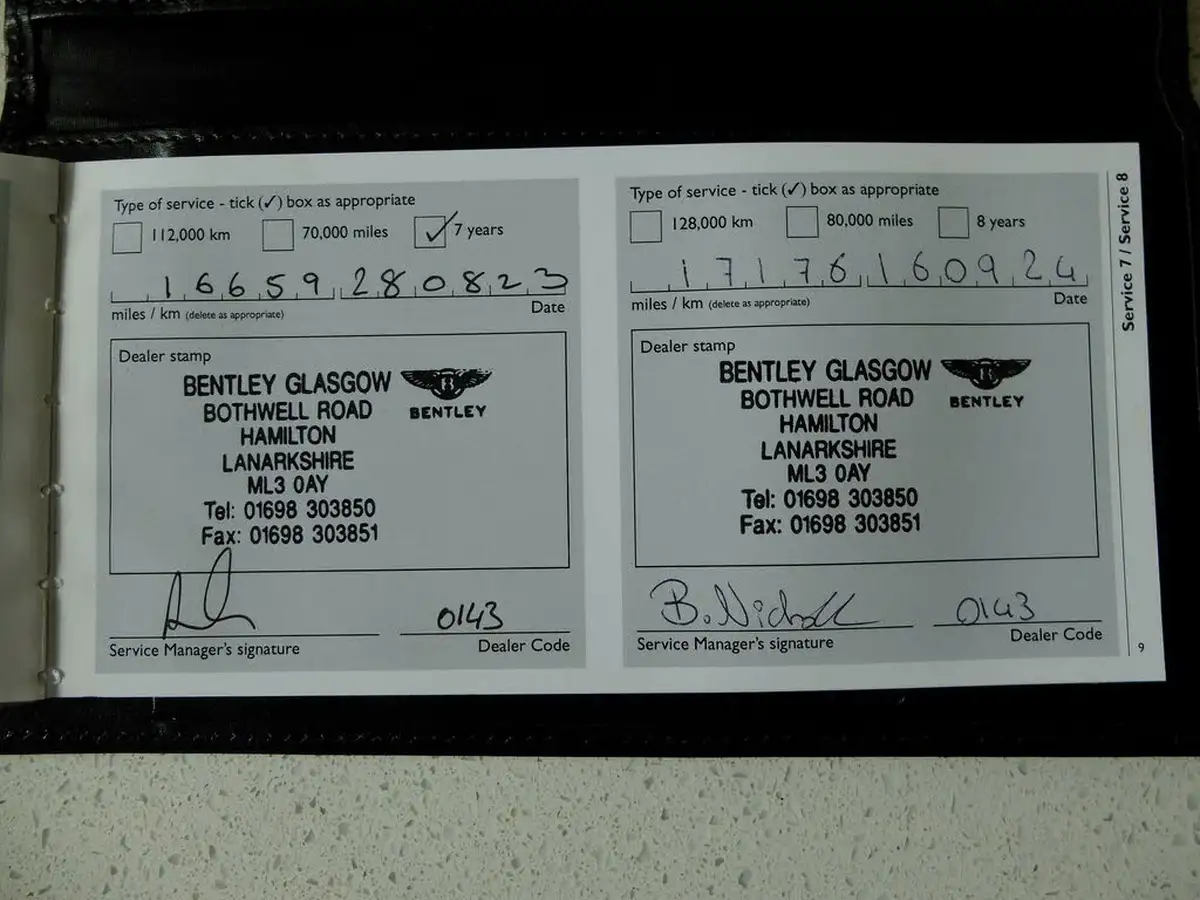 Type of service - tick (✓) box as appropriate
112,000 km 70,000 miles ✓ 7 years
16659 280823
miles / km (delete as appropriate) Date
Dealer stamp
BENTLEY GLASGOW
BOTHWELL ROAD
HAMILTON
LANARKSHIRE
ML3 0AY
Tel: 01698 303850
Fax: 01698 303851
B
BENTLEY
0143
Service Manager's signature Dealer Code
Type of service - tick (✓) box as appropriate
128,000 km 80,000 miles 8 years
17176 160924
miles / km (delete as appropriate) Date
Dealer stamp
BENTLEY GLASGOW
BOTHWELL ROAD
HAMILTON
LANARKSHIRE
ML3 0AY
Tel: 01698 303850
Fax: 01698 303851
B
BENTLEY
B. 0143
Service Manager's signature Dealer Code
Service 7 / Service 8
9